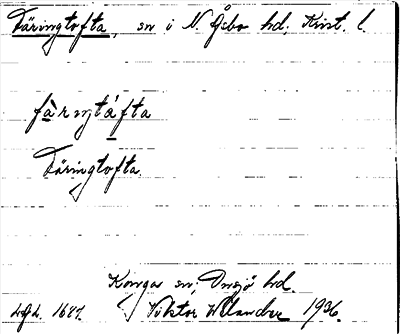 Färingtofta, sn i N. Åsbo hd, Krist. l.
fàrŋtáfta
Färingtofta.
Konga sn, Onsjö hd.
Lyd. 1687. Viktor Wilander 1936.